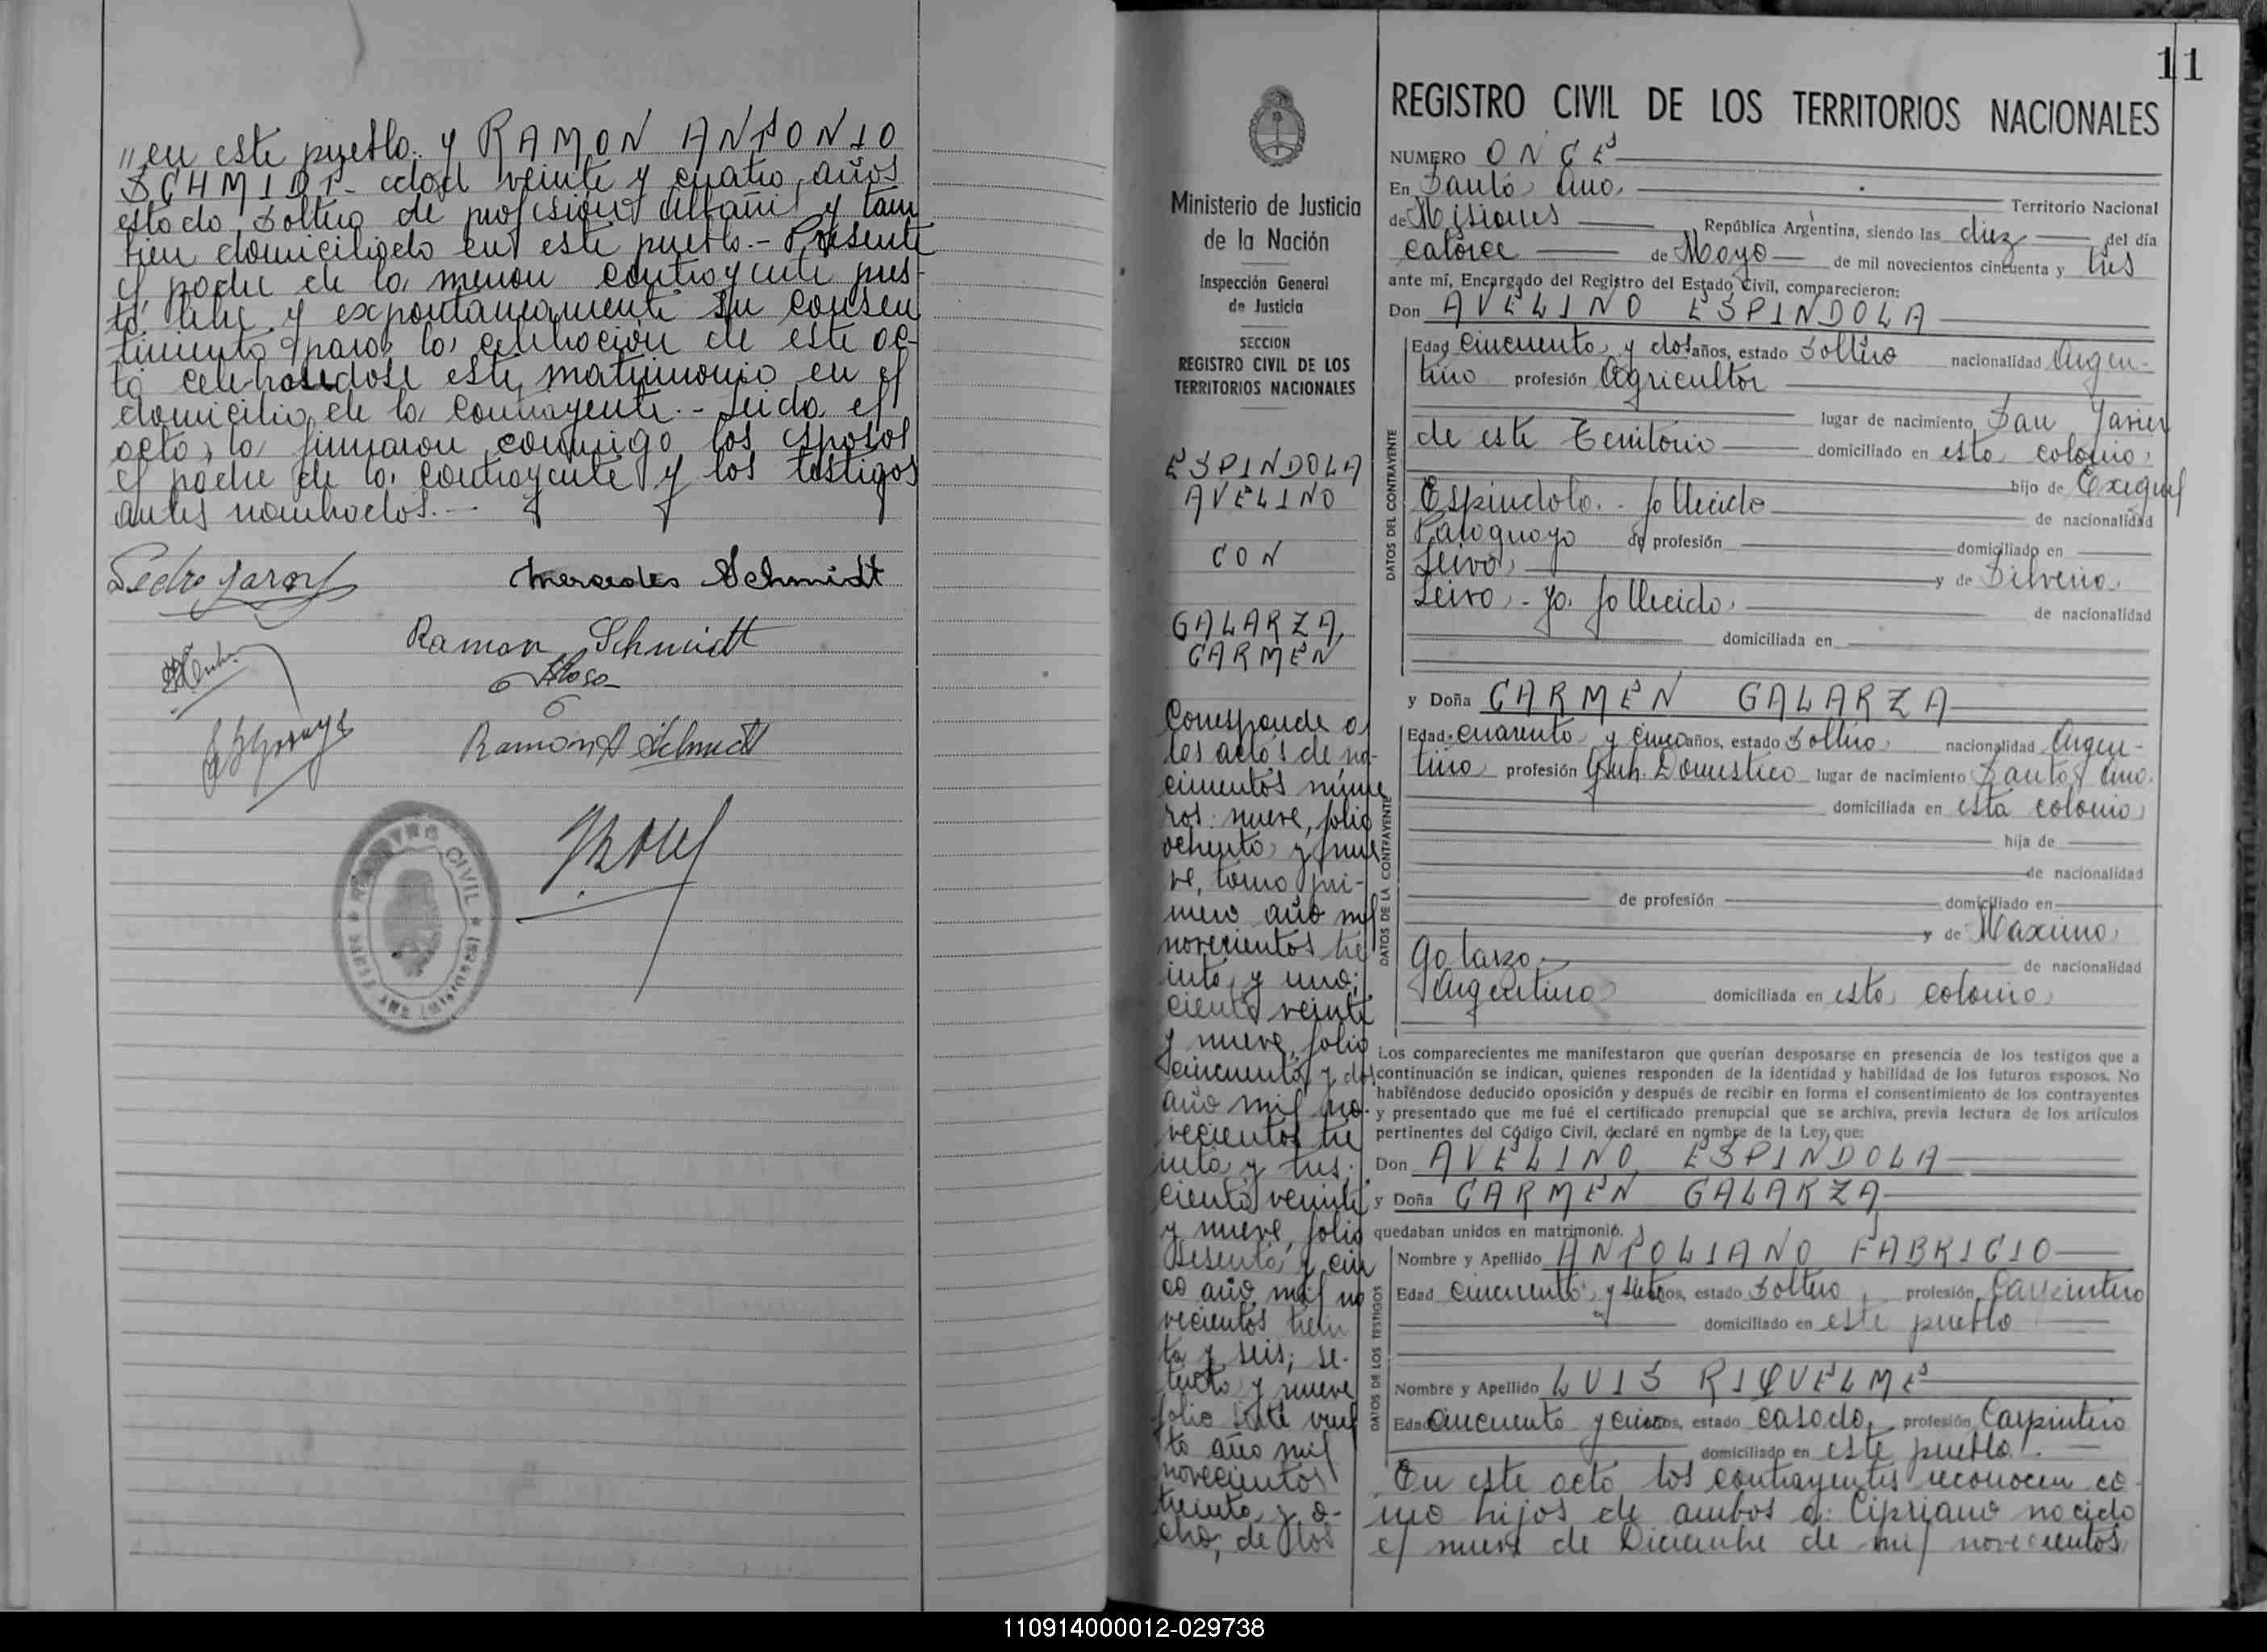 "en este pueblo. y RAMON ANTONIO
SCHMIDT - edad veinte y cuatro años
estado soltero de profesión albañil y tam
bien domiciliado en este pueblo.- Presente
el padre de la menor contrayente pres-
tó libre y expontaneamente su consen
timiento para la celebración de este ac-
to celebrandose este matrimonio en el
domicilio de la contrayente.- Leida el
acto, la firmaron conmigo los esposos
el padre de la contrayente y los testigos
antes nombrados.-
Mercedes Schmidt
Ramon Schmidt
Ramon A Schmidt
REGISTRO CIVIL
11
Ministerio de Justicia
de la Nación
Inspección General
de Justicia
SECCION
REGISTRO CIVIL DE LOS
TERRITORIOS NACIONALES
ESPINDOLA
AVELINO
CON
GALARZA,
CARMEN
Corresponde a
los actos de na-
cimientos núme
ros: nueve, folio
ochenta y nue
ve, tomo pri-
mero año mil
novecientos tre
inta y uno;
ciento veinte
y nueve, folio
cincuenta y dos
año mil no-
vecientos tre
inta y tres;
ciento veinte
y nueve, folio
sesenta y cin
co año mil no
vecientos trein
ta y seis; se-
tenta y nueve
folio siete vuel
to año mil
novecientos
treinta y o-
cho, de los
REGISTRO CIVIL DE LOS TERRITORIOS NACIONALES
NUMERO ONCE
En Santo Ana, Territorio Nacional
de Misiones República Argentina, siendo las diez del día
catorce de Mayo de mil novecientos cincuenta y tres
ante mí, Encargado del Registro del Estado Civil, comparecieron:
Don AVELINO ESPINDOLA
DATOS DEL CONTRAYENTE
Edad cincuenta y dos años, estado soltero nacionalidad Argen-
tino profesión Agricultor
lugar de nacimiento San Javier
de este Territorio domiciliado en esta colonia
hijo de Exequiel
Espindola.- fallecido de nacionalidad
Paraguayo de profesión domiciliado en
Leiva, y de Silveria
Leiva,- ya fallecida, de nacionalidad
domiciliada en
y Doña CARMEN GALARZA
DATOS DE LA CONTRAYENTE
Edad cuarenta y cinco años, estado soltera nacionalidad Argen-
tina profesión Queh. Domestico lugar de nacimiento Santa Ana
domiciliada en esta colonia
hija de
de nacionalidad
de profesión domiciliado en
y de Maxima
Galarza de nacionalidad
Argentina domiciliada en esta colonia
Los comparecientes me manifestaron que querían desposarse en presencia de los testigos que a
continuación se indican, quienes responden de la identidad y habilidad de los futuros esposos. No
habiéndose deducido oposición y después de recibir en forma el consentimiento de los contrayentes
y presentado que me fué el certificado prenupcial que se archiva, previa lectura de los artículos
pertinentes del Código Civil, declaré en nombre de la Ley, que:
Don AVELINO ESPINDOLA
y Doña CARMEN GALARZA
quedaban unidos en matrimonio.
DATOS DE LOS TESTIGOS
Nombre y Apellido ANTOLIANO FABRICIO
Edad cincuenta y siete años, estado soltero, profesión Carpintero
domiciliado en este pueblo
Nombre y Apellido LUIS RIQUELME
Edad cincuenta y cinco años, estado casado, profesión Carpintero
domiciliado en este pueblo.
En este acto los contrayentes reconocen co
mo hijos de ambos a: Cipriano nacido
el nueve de Diciembre de mil novecientos
110914000012-029738